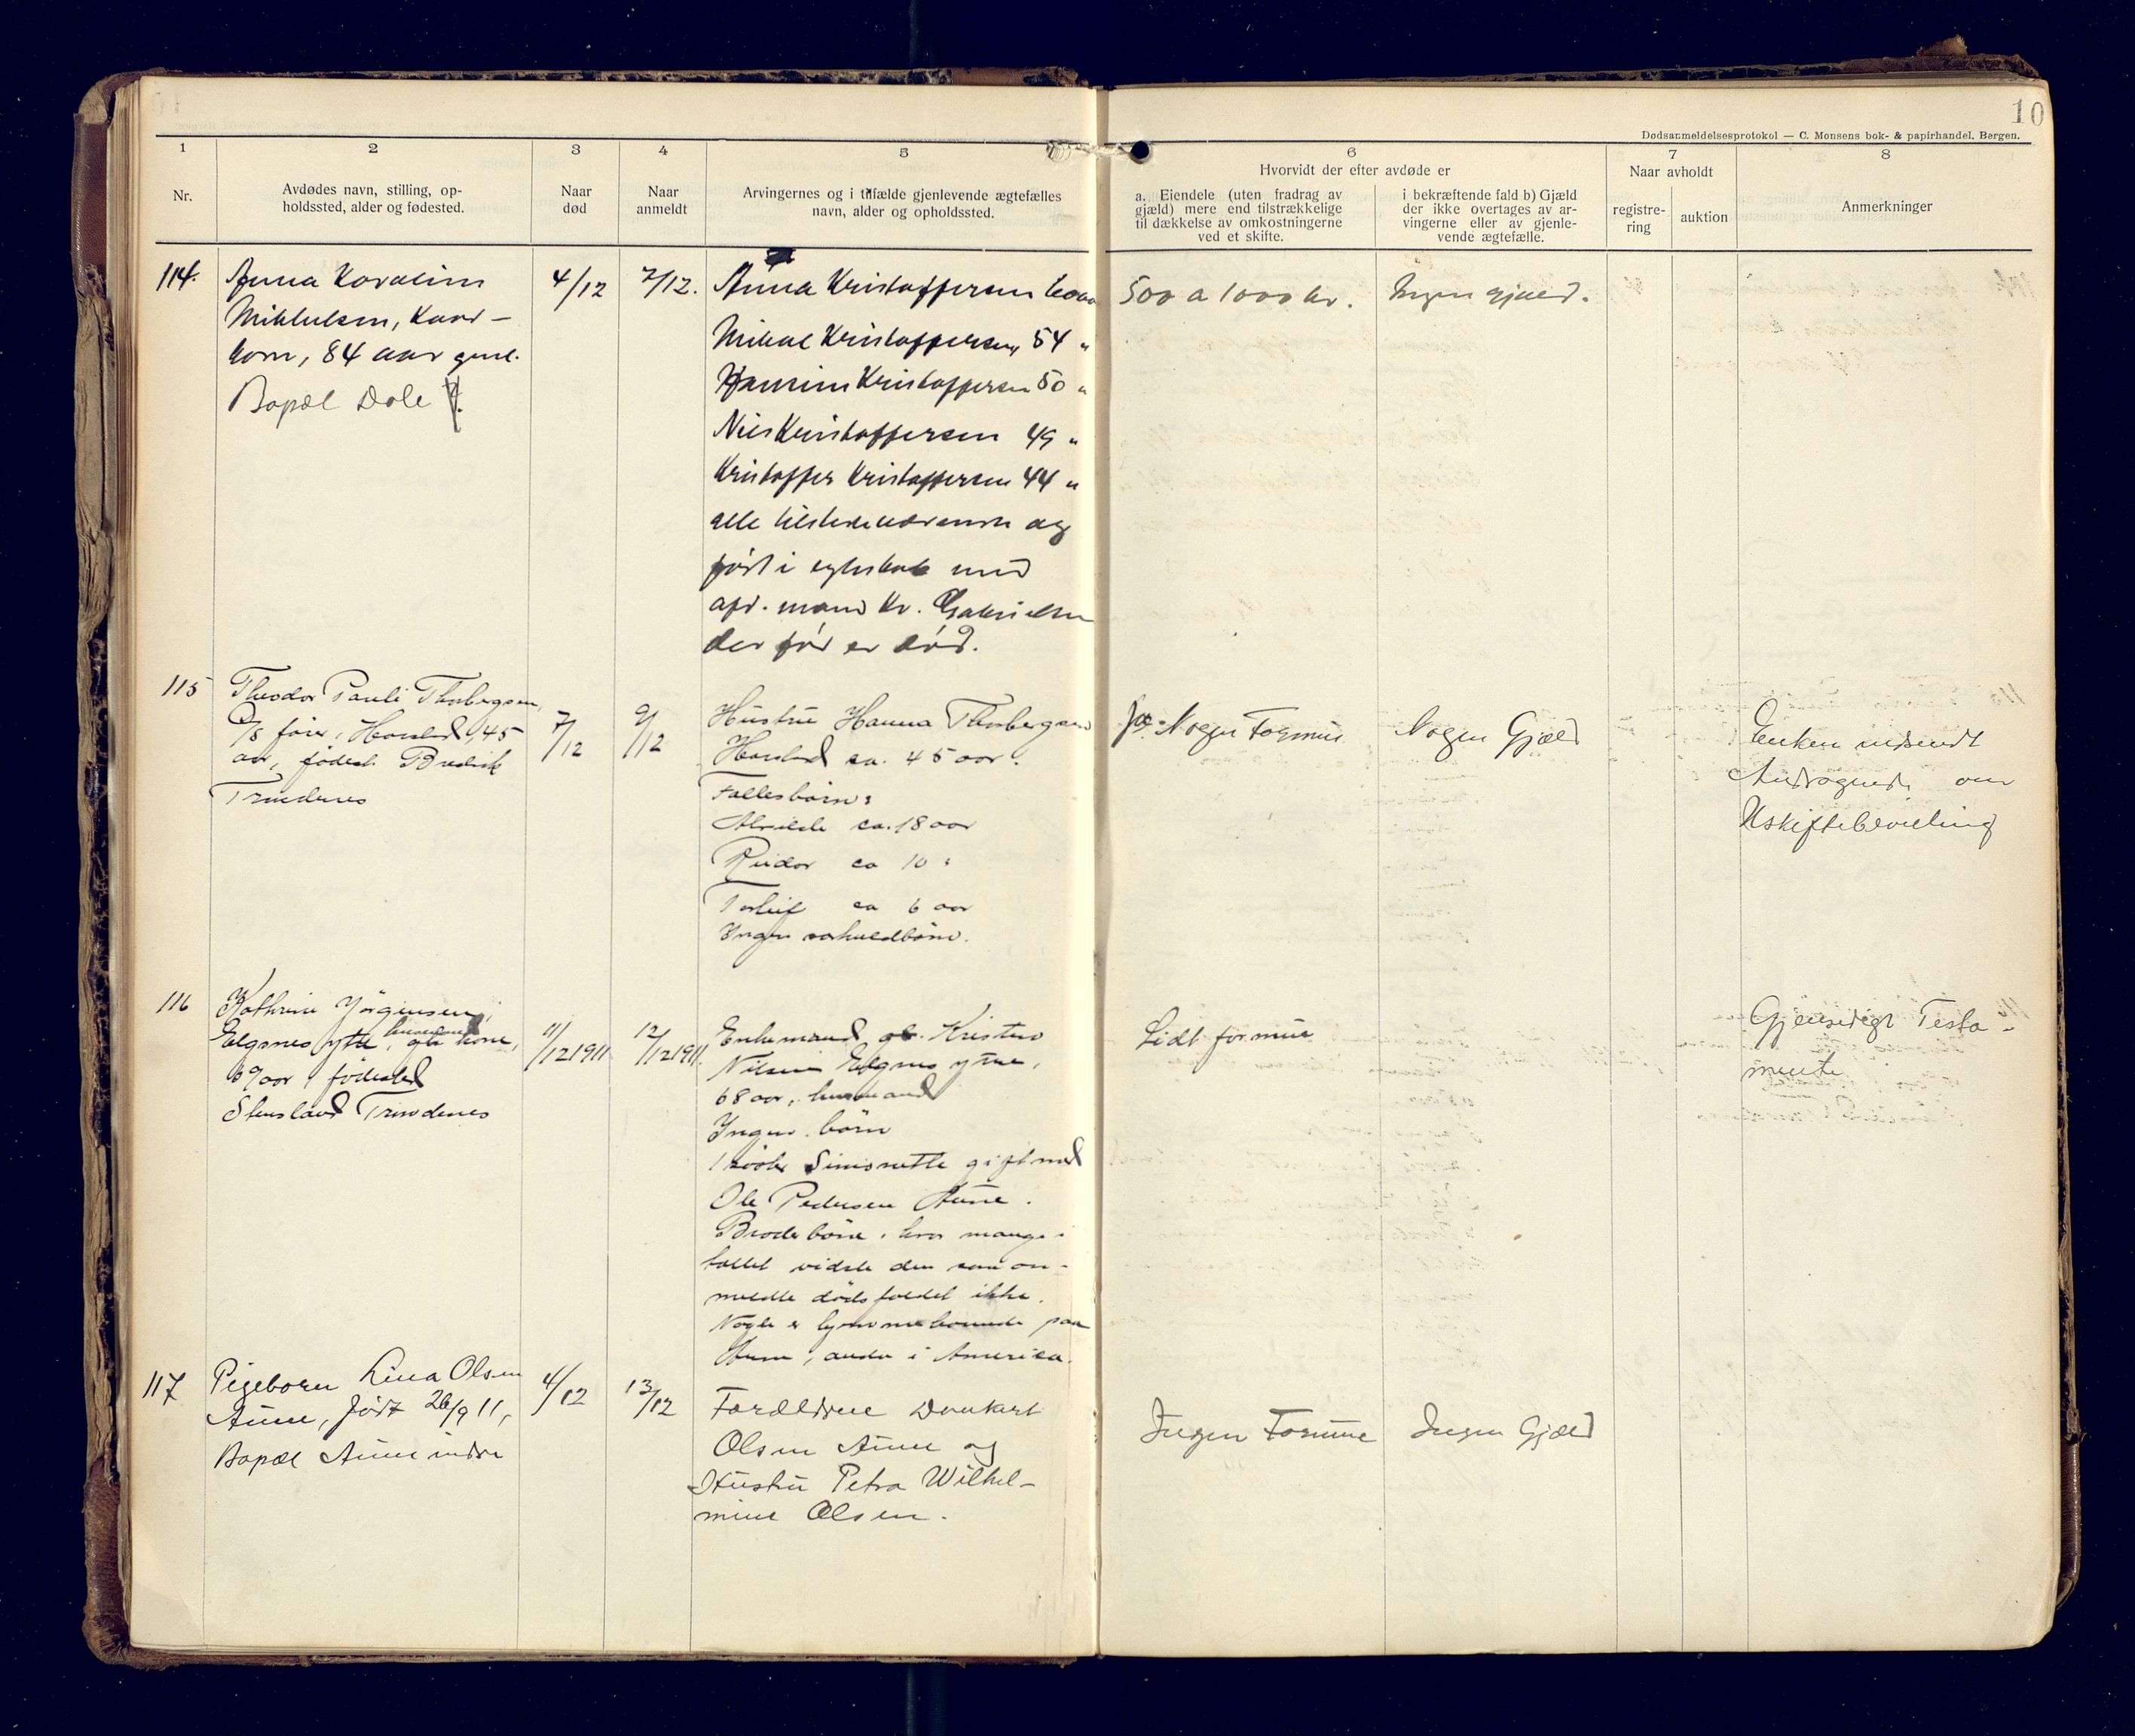 10
Dødsanmeldelsesprotokol — C. Monsens bok- & papirhandel, Bergen.
1 2 3 4 5 6 7 8
Nr.
Avdødes navn, stilling, op-
holdssted, alder og fødested.
Naar
død
Naar
anmeldt
Arvingernes og i tilfælde gjenlevende ægtefælles
navn, alder og opholdssted.
Hvorvidt der efter avdøde er
a. Eiendele (uten fradrag av
gjæld) mere end tilstrækkelige
til dækkelse av omkostningerne
ved et skifte.
i bekræftende fald b) Gjæld
der ikke overtages av ar-
vingerne eller av gjenle-
vende ægtefælle.
Naar avholdt
registre-
ring
auktion
Anmerkninger
114.
Anna Karoline
Mikkelsen, Kaar-
kone, 84 aar gml.
Bopæl Dale
4/12
7/12.
Anna Kristoffersen 60 aar
Mikal Kristoffersen, 54 "
Hansine Kristoffersen 50 "
Nils Kristoffersen 49 "
Kristoffer Kristoffersen 44 "
alle tilstedeværende og
født i egteskab med
afd. mand Kr. Gabrielsen
der før er død.
500 a 1000 kr.
Ingen gjæld.
115
Theodor Pauli Thorbergsen,
D/S fører, Harstad, 45
aar, fødest.
Trondenes
7/12
9/12
Hustru Hanna Thorbergsen
Harstad ca. 45 aar.
Fællesbørn:
Alvilde ca. 18 aar
Reidar ca 10 "
Torleif ca 6 aar
Ingen særkuldbørn.
Ja. Nogen Formue
Nogen Gjæld
Enken indsendt
Andragende om
Uskiftebevilling
116
Kathrine Jörgensen,
Elgsnes ytre, husmands kone,
69 aar, fødested
Stensland Trondenes
11/12 1911
12/12 1911.
Enkemand Kristen
Nilsen Elgsnes ytre,
68 aar, husmand
Ingen börn
1 söster Simonette gift med
Ole Pedersen Aune.
Broderbörn, hvor mange i
tallet vidste den som an-
meldte dödsfaldet ikke.
Nogle er hjemmehörende paa
Aune, andre i America.
Lidt formue
Gjensidigt Testa-
mente
117
Pigebarn Lina Olsen
Aune, født 26/9 11,
Bopæl Aune indre
4/12
13/12
Forældrene Donkart
Olsen Aune og
Hustru Petra Wilhel-
mine Olsen.
Ingen Formue
Ingen Gjæld